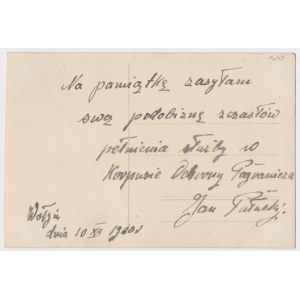 Na pamiątkę zasyłam
swą podobiznę z czasów
pełnienia służby w
Korpusie Ochrony Pogranicza
Jan
dnia 10 XI